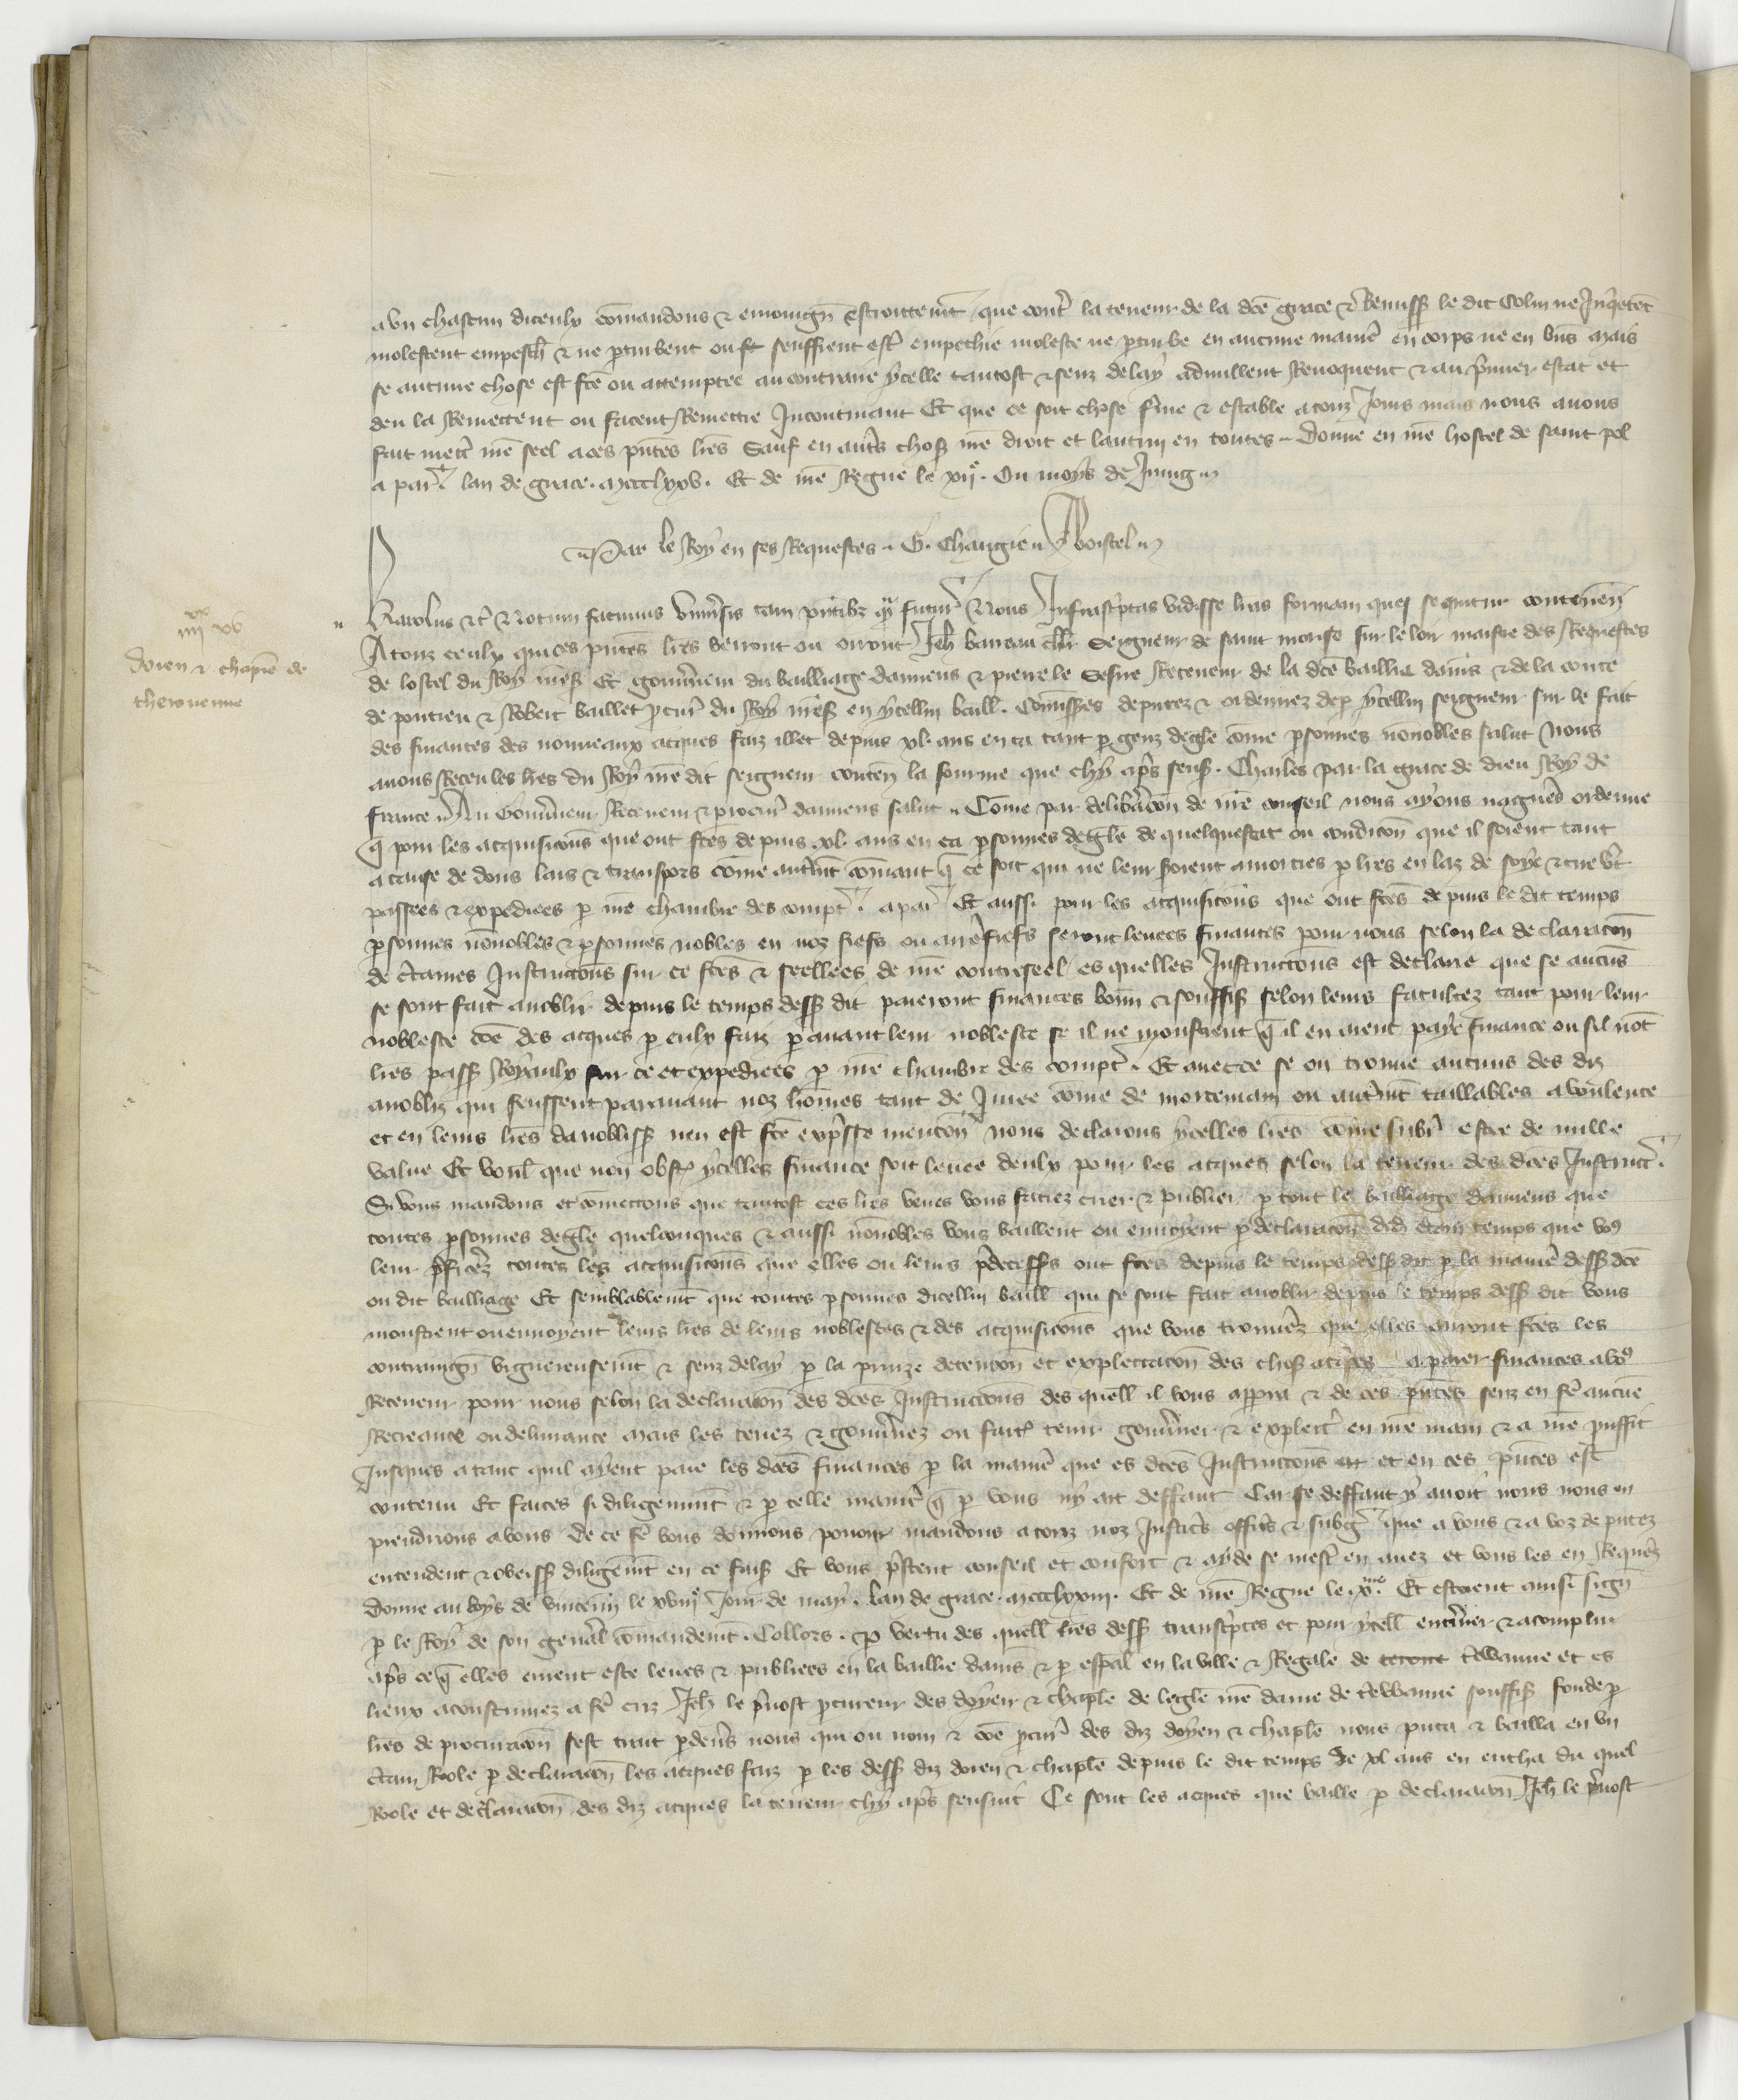 a un chascun diceulx comandons & enioingn estroittemt que contr la teneur de la dce grace & remiss le dit Colin ne Inqetet
molestent empesch & ne ptourbent ou st seuffrent estr empechie moleste ne ptourbe en aucune manie en corps ne en bns Mais
se aucune chose est fce ou attemptee au contraire ycelle tantost & senz delay adnullent Revoquent & au pmier estat et
deu la Remettent ou facent Remettre Incontinant Et que ce soit chose fme & estable a touz Jours mais nous avons
fait mettr nre seel a ces pntes lres Sauf en autrs choss nre droit et lautruy en toutes Donne en nre hostel de saint pol
a par. lan de grace. mccclxxv. Et de nre Regne le xije. Ou moys de Juing
Par le Roy en ses Requestes G. Changie Boistel
iiijxx xv
doien & chapitre de
therouenne
Karolus &c Notum facimus universis tam pntibz q futur Nos Infrascptas vidisse lras formam que sequitur continen
A touz ceulx qui ces pntes lres verront ou orront Jeh barreau chlr Seigneur de saint morise sur le loir maistre des Requestes
de lostel du Roy nres Et gouvneur du bailliage damiens & pierre le Sesne Receveur de la dce baillie damis & de la conte
de pontieu & Robert baillet pcur du Roy nres en ycellui baill. Comisses deputez & ordennez de p ycellui seigneur sur le fait
des finances des nouveaux acques faiz illec depuis xl. ans en ca tant p genz degle come psonnes nonobles salut Nous
avons Receu les lres du Roy nre dit seigneur conten la fourme que chy aps sens. Charles par la grace de dieu Roy de
france Au Gouvneur Receveur & procur damiens salut Come par delibacon de nre conseil nous ayons nagues ordenne
q pour les acquisicons que ont fces depuis .xl. ans en ca psonnes degle de quelquestat ou condicon que il soient tant
a cause de dons lais & transpors come autmt comant q ce soit qui ne leur soient amorties p lres en laz de soye & cire vt
passees & expediees p nre chambre des compt. a par Et aussi pour les acquisicons que ont fces depuis le dit temps
psonnes nonobles & psonnes nobles en noz fiefs ou arrefiefs seront levees finances pour nous selon la declaracon
de ctaines Instructions sur ce fces & seellees de nre contreseel es quelles Instructions est declare que se aucuns
se sont fait anoblir depuis le temps dess dit paieront finances bonn & souffis selon leurs facultez tant pour leur
noblesce coe des acques p eulx faiz p avant leur noblesce se il ne monstrent q il en aient paye finance ou sil nont
lres pass Royaulx sur ce et expediees p nre chambre des compt. Et avec ce se on trouve aucuns des diz
anobliz qui feussent paravant noz homes tant de Juree come de mortemain ou autmt taillables a voulente
et en leurs lres danobliss nen est fce expsse mencon nous declarons ycelles lres come subr estre de nulle
value Et voul que non obst ycelles finance soit levee deulx pour les acques selon la teneur des dces Instruct.
Si vous mandons et comettons que tantost ces lres veues vous faciez crier & publier p tout le bailliage damiens que
toutes psonnes degle quelconques & aussi nonobles vous baillent ou envoyent p declaracon dedens ctain temps que vos
leur pficez toutes les acquisicons que elles ou leurs pdecesss ont fces depuis le temps dess dit p la manie dess dce
ou dit bailliage Et semblablemt que toutes psonnes dicellui baill qui se sont fait anoblir depuis le temps dess dit vous
monstrent ou envoyent leurs lres de leurs noblesces & des acquisicons que vous trouvez que elles auront fces les
contraingn viguereusemt & senz delay p la prinze detencon et explettacon des choss acqses a paier finances a vos
Receveur pour nous selon la declaracon des dces Instructions des quell il vous apperra & de ces pntes senz en fe aucune
Recreance ou delivrance Mais les tenez & gouvnez ou fait tenir gouvner & explett en nre main & a nre prouffit
Jusques a tant quil ayent paie les dces finances p la manie que es dces Instructions et en ces pntes est
contenu Et faites si diligemmt & p telle manie q p vous ny ait deffaut Car se deffaut y avoit nous nous en
prendrons a vous De ce fe vous donnons povoir mandons a touz noz Justics offics & subg que a vous & a voz deputez
entendent & obeiss diligemt en ce fais Et vous pstent conseil et confort & ayde se mest en avez et vous les en Requez
Donne au boys de vincenn le xviije Jour de may. lan de grace mccclxxiij. Et de nre Regne le .xme. Et estoient ainsi sign
p le Roy de son genal comandemt. Collors. p vertu des quell lres dess transcptes et pour ycell entner & acomplir
aps ce q elles eurent este leues & publiees en la baillie damis & p espal en la ville & Regale de teroue therwanne et es
lieux acoustumez a fe criz Jeh le pvost pcureur des doyen & chaple de legle nre dame de therwanne souffis fonde p
lres de procuracon sest trait p devs nous qui ou nom & coe pcur des diz doyen & chaple nous pnta & bailla en un
ctain Role p declaracon les acques faiz p les dess diz doien & chaple depuis le dit temps de xl ans en encha du quel
Role et declaracon des diz acques la teneur chy aps sensuit Ce sont les acques que baille p declaracon Jeh le pvost